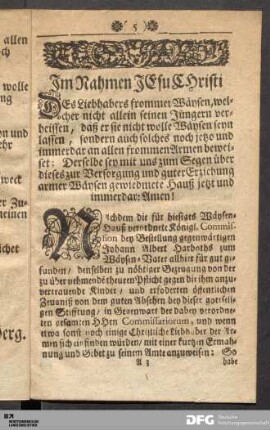 allen
ch
wolle
ng
n und
ehr
weck
er Zu-
neinen
lichet
erg.
5
Im Nahmen JEsu CHristi
DEs Liebhabers frommer Wäysen, wel-
cher nicht allein seinen Jüngern ver-
heissen / daß er sie nicht wolle Wäysen seyn
lassen / sondern auch solches noch jetzo und
immerdar an allen frommen Armen bewei-
set: Derselbe sey mit uns zum Segen über
dieses zur Versorgung und guter Erziehung
armer Wäysen gewiedmete Hauß jetzt und
immerdar: Amen!
NAchdem die für hiesiges Wäysen-
Hauß verordnete Königl. Commis-
sion bey Bestellung gegenwärtigen
Johann Albert Harboths zum
Wäysen-Vater allhie für gut ge-
funden / denselben zu nöhtiger Bezeugung von der
zu übernehmende theuren Pflicht gegen die ihm anzu-
vertrauende Kinder / und erforderten öffentlichen
Zeugniß von dem guten Absehen bey dieser gottseli-
gen Stifftung / in Gegenwart der dabey verordne-
ten gesamten HHrn Commissariorum, und wenn
etwa sonst noch einige Christliche Liebhaber der Ar-
men sich einfinden würden / mit einer kurtzen Ermah-
nung und Gebet zu seinem Amte anzuweisen: So
A 3 habe
DFG Deutsche
Forschungsgemeinschaft